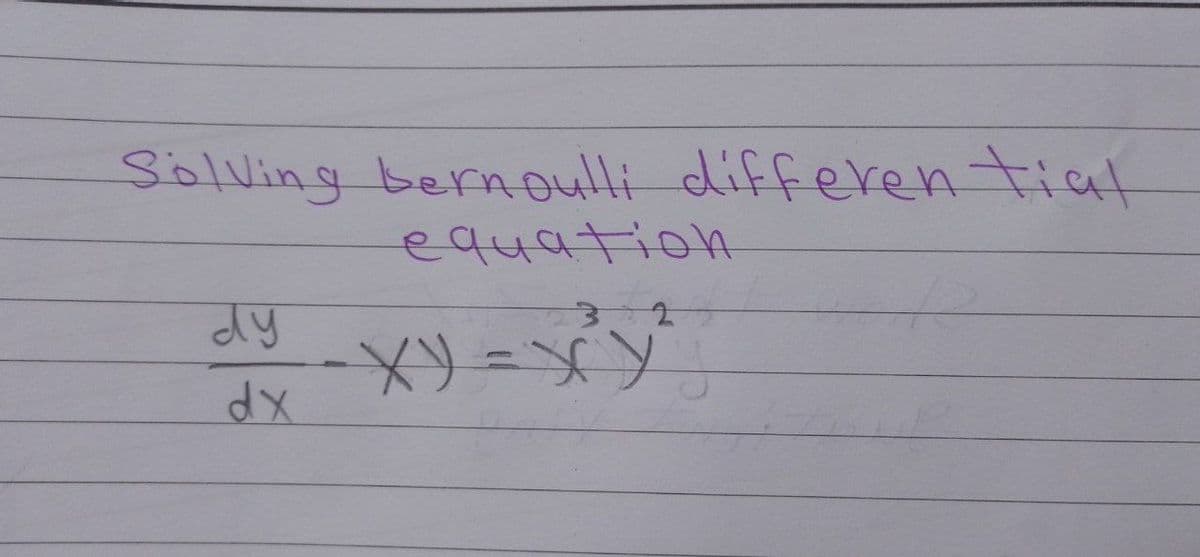 Solving bernoulli differential
equation
dy/dx - xy = x³y²